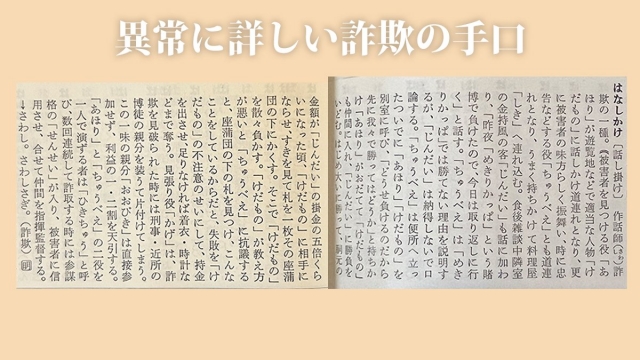 異常に詳しい詐欺の手口
はなしかけ〔話し掛け〕 作話師 詐
欺の一種。《被害者を見つける役「あ
ほり」が遊覧地などで適当な人物「け
だもの」に話しかけ道連れとなり、更
に被害者の味方らしく振舞い、時に忠
告などする役「ちゅうべえ」とも道連
れとなり、うまく持ちかけて料理屋
「しき」へ連れ込む。食後雑談中隣室
の金持風の客「じんだい」も話に加わ
り、「昨夜「めきりかっぱ」という賭
博で負けたので、今日は取り返しに行
く」と話す。「ちゅうべえ」は「めき
りかっぱ」では勝てない理由を説明す
るが、「じんだい」は納得しないで口
論する。「ちゅうべえ」は便所へ立っ
たついでに「あほり」「けだもの」を
別室に呼び、「どうせ負けるのだから
先に我々で勝ってはどうか」と持ちか
け「あほり」がおだてて「けだもの」
も仲間に入れ、「じんだい」に勝負を
いどむ。はじめ大いに勝って、胴元の
金額が「じんだい」の掛金の五倍くら
いになった頃、「けだもの」に相手に
ならせ、すきを見て札を一枚その座蒲
団の下にかくす。そこで「けだもの」
を散々負かす。「けだもの」が教え方
が悪いと「ちゅうべえ」に抗議する
と、座蒲団の下の札を見つけ、こんな
ことをしているからだと、失敗を「け
だもの」の不注意のせいにして、持金
を出させ、足りなければ着衣・時計な
どまで奪う。見張りの役「かげ」は、詐
欺を見破られた時には刑事・近所の
博徒の親分を装うて片付けてしまう。
この一味の親分「おおびき」は直接参
加せず、利益の一、二割を天引する。
「あほり」と「ちゅうべえ」の二役を
一人で演ずる者は「ひきちゅう」と呼
び、数回連続して詐取する時には参謀
格の「せんせい」が入り、被害者に信
用させ、合せて仲間を指揮監督する。
↓さわし。さわしさぎ。〈詐欺〉